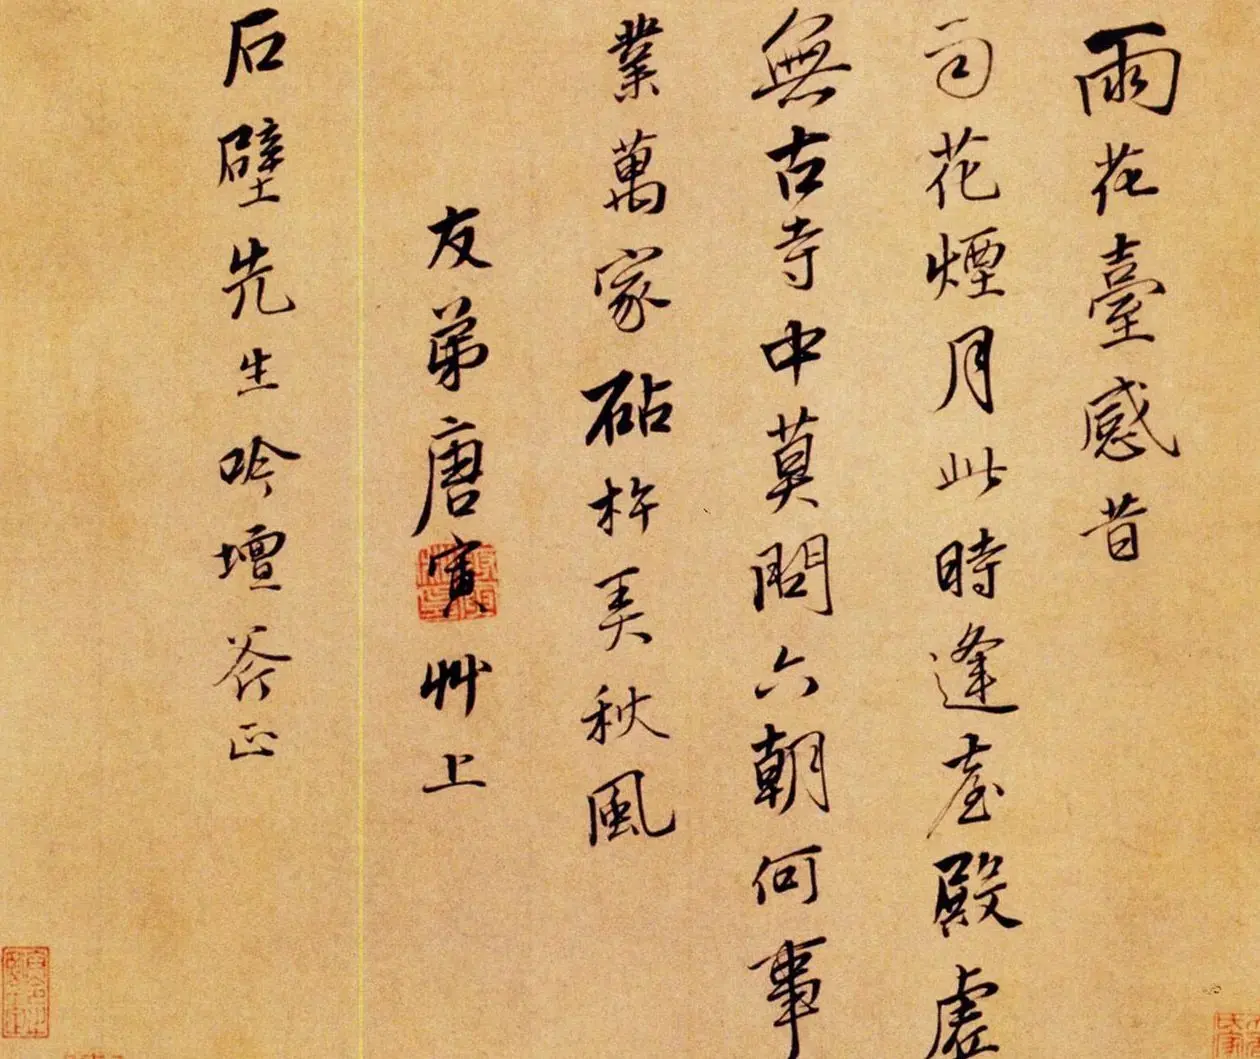 雨花臺感昔
雨花煙月此時逢臺殿虛
無古寺中莫問六朝何事
業萬家砧杵弄秋風
友弟唐寅艸上
石壁先生吟壇斧正